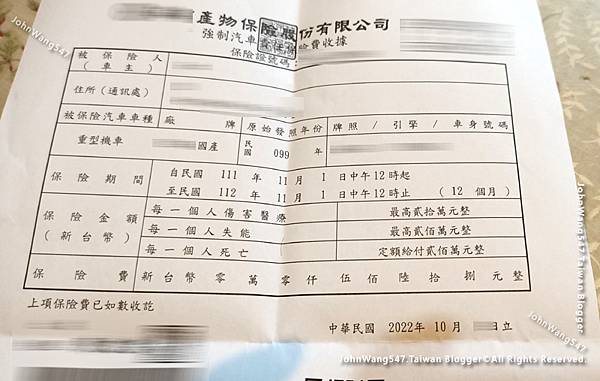 JohnWang547.
產物保險股份有限公司
強制汽車責任保險費收據
保險證號碼：
被保險人
（車主）
住所（通訊處）
被保險汽車車種 廠牌 原始發照年份 牌照/引擎/車身號碼
重型機車 國產 民國 099 年
保險期間 自民國 111 年 11 月 1 日中午12時起
至民國 112 年 11 月 1 日中午12時止 （12 個月）
保險金額（新台幣） 每一個人傷害醫療 最高貳拾萬元整
每一個人失能 最高貳佰萬元整
每一個人死亡 定額給付貳佰萬元整
保險費 新台幣 零萬 零仟 伍佰 陸拾 捌元整
上項保險費已如數收訖
中華民國 2022年 10 月 日立
JohnWang547.Taiwan Blogger
JohnWang547.
JohnWang547.Taiwan Blogger©All Rights Reserved.